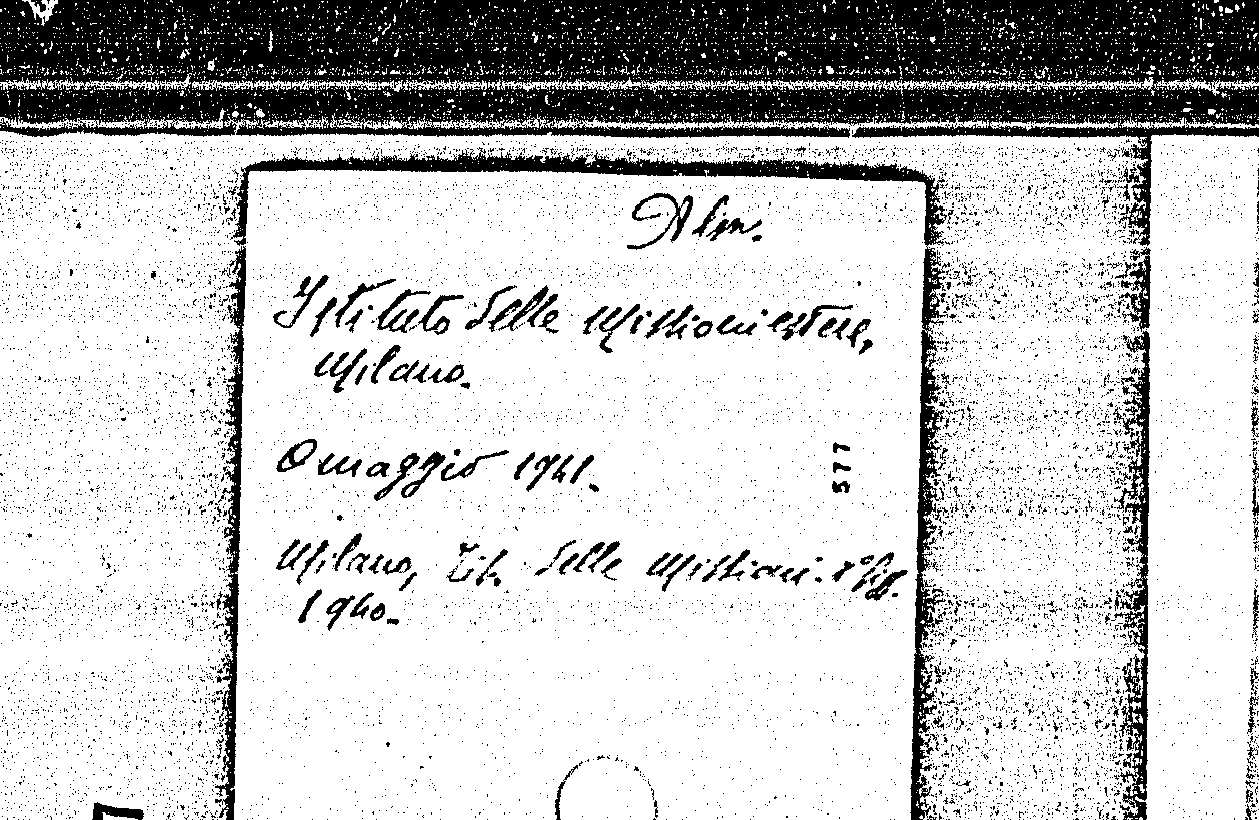 Alm.
Istituto delle Missioni estere,
Milano.
Omaggio 1941.
577
Milano, Tip. delle Missioni. 8° fig.
1940.